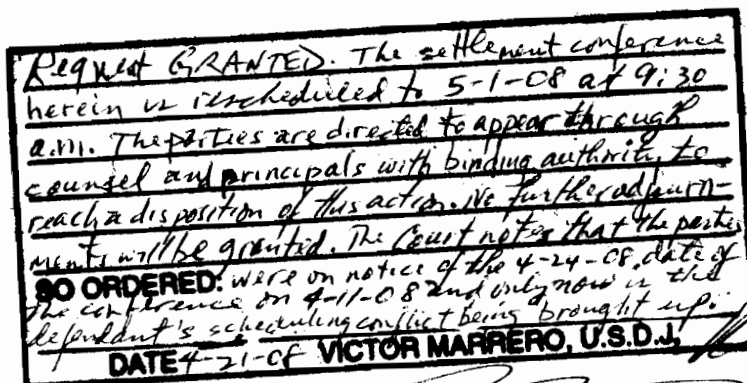 Request GRANTED. The settlement conference
herein is rescheduled to 5-1-08 at 9:30
a.m. The parties are directed to appear through
counsel and principals with binding authority to
reach a disposition of this action. No further adjourn-
ments will be granted. The Court notes that the parties
SO ORDERED: were on notice of the 4-24-08 date of
the conference on 4-11-08 and only now is the
defendant's scheduling conflict being brought up.
DATE 4-21-08 VICTOR MARRERO, U.S.D.J.